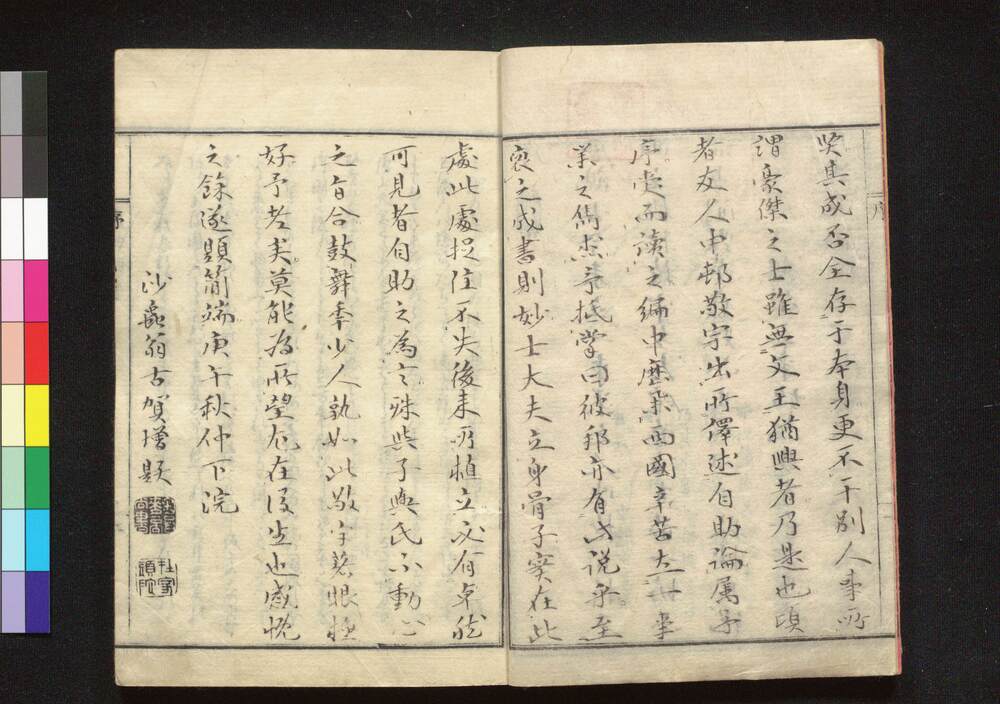 序
矣其成否全存于本身更不干別人事所
謂豪傑之士雖無文王猶興者乃是也頃
者友人中邨敬宇出所譯述自助論属予
序受而讀之編中歴采西國辛苦立事
業之雋杰予抵掌曰彼邦亦有此説乎至
裒之成書則妙士大夫立身骨子実在此
處此處捉住不失後来所植立必有卓然
可見者自助之為言殊與子輿氏不動心
之旨合鼓舞季少人孰如此敬宇慧眼極
好予老矣莫能為所望尤在後生也感忱
之餘遂題簡端庚午秋仲下浣
沙蟲翁古賀增題
序